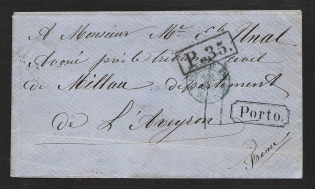 A Monsieur Mr Unal
P. 35.
Avoué près le tribunal civil
de Millau département
Porto.
de L'Aveyron
France